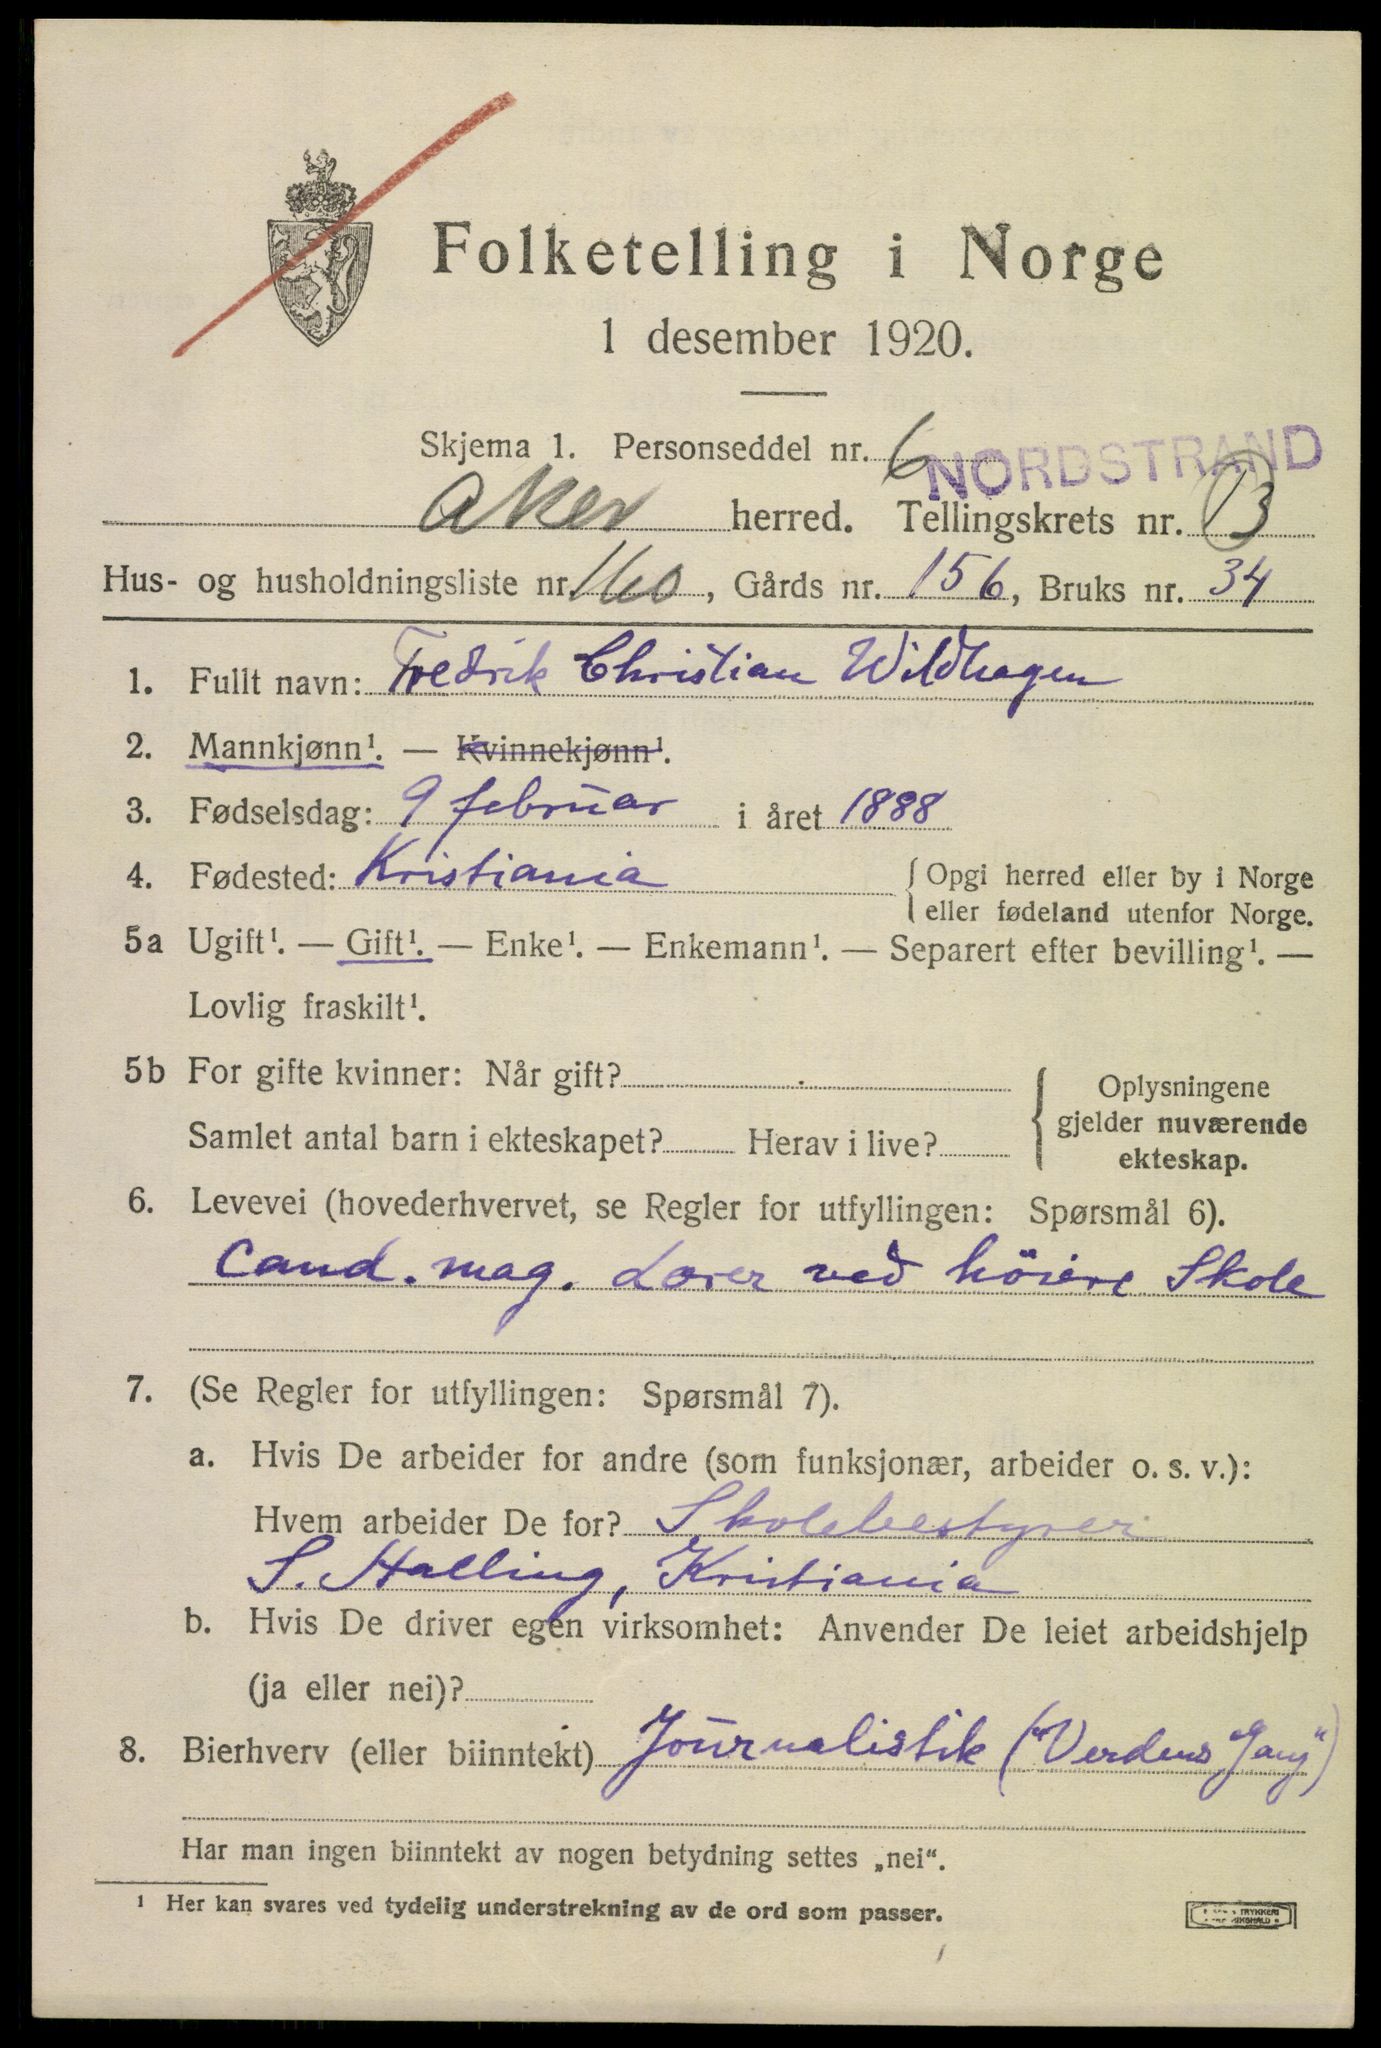 Folketelling i Norge
1 desember 1920.
Skjema 1. Personseddel nr. 6
NORDSTRAND
Aker herred. Tellingskrets nr. 13
Hus- og husholdningsliste nr. 160, Gårds nr. 156, Bruks nr. 34
1. Fullt navn: Fredrik Christian Wildhagen
2. Mannkjønn¹. — Kvinnekjønn¹.
3. Fødselsdag: 9 februar i året 1888
4. Fødested: Kristiania { Opgi herred eller by i Norge
eller fødeland utenfor Norge.
5a Ugift¹. — Gift¹. — Enke¹. — Enkemann¹. — Separert efter bevilling¹. —
Lovlig fraskilt¹.
5b For gifte kvinner: Når gift?
Samlet antal barn i ekteskapet? Herav i live?
{ Oplysningene
gjelder nuværende
ekteskap.
6. Levevei (hovederhvervet, se Regler for utfyllingen: Spørsmål 6).
Cand. mag. Lærer ved höiere Skole
7. (Se Regler for utfyllingen: Spørsmål 7).
a. Hvis De arbeider for andre (som funksjonær, arbeider o. s. v.):
Hvem arbeider De for? Skolebestyrer
S. Halling, Kristiania
b. Hvis De driver egen virksomhet: Anvender De leiet arbeidshjelp
(ja eller nei)?
8. Bierhverv (eller biinntekt) Journalistik ("Verdens Gang")
Har man ingen biinntekt av nogen betydning settes „nei“.
¹ Her kan svares ved tydelig understrekning av de ord som passer.